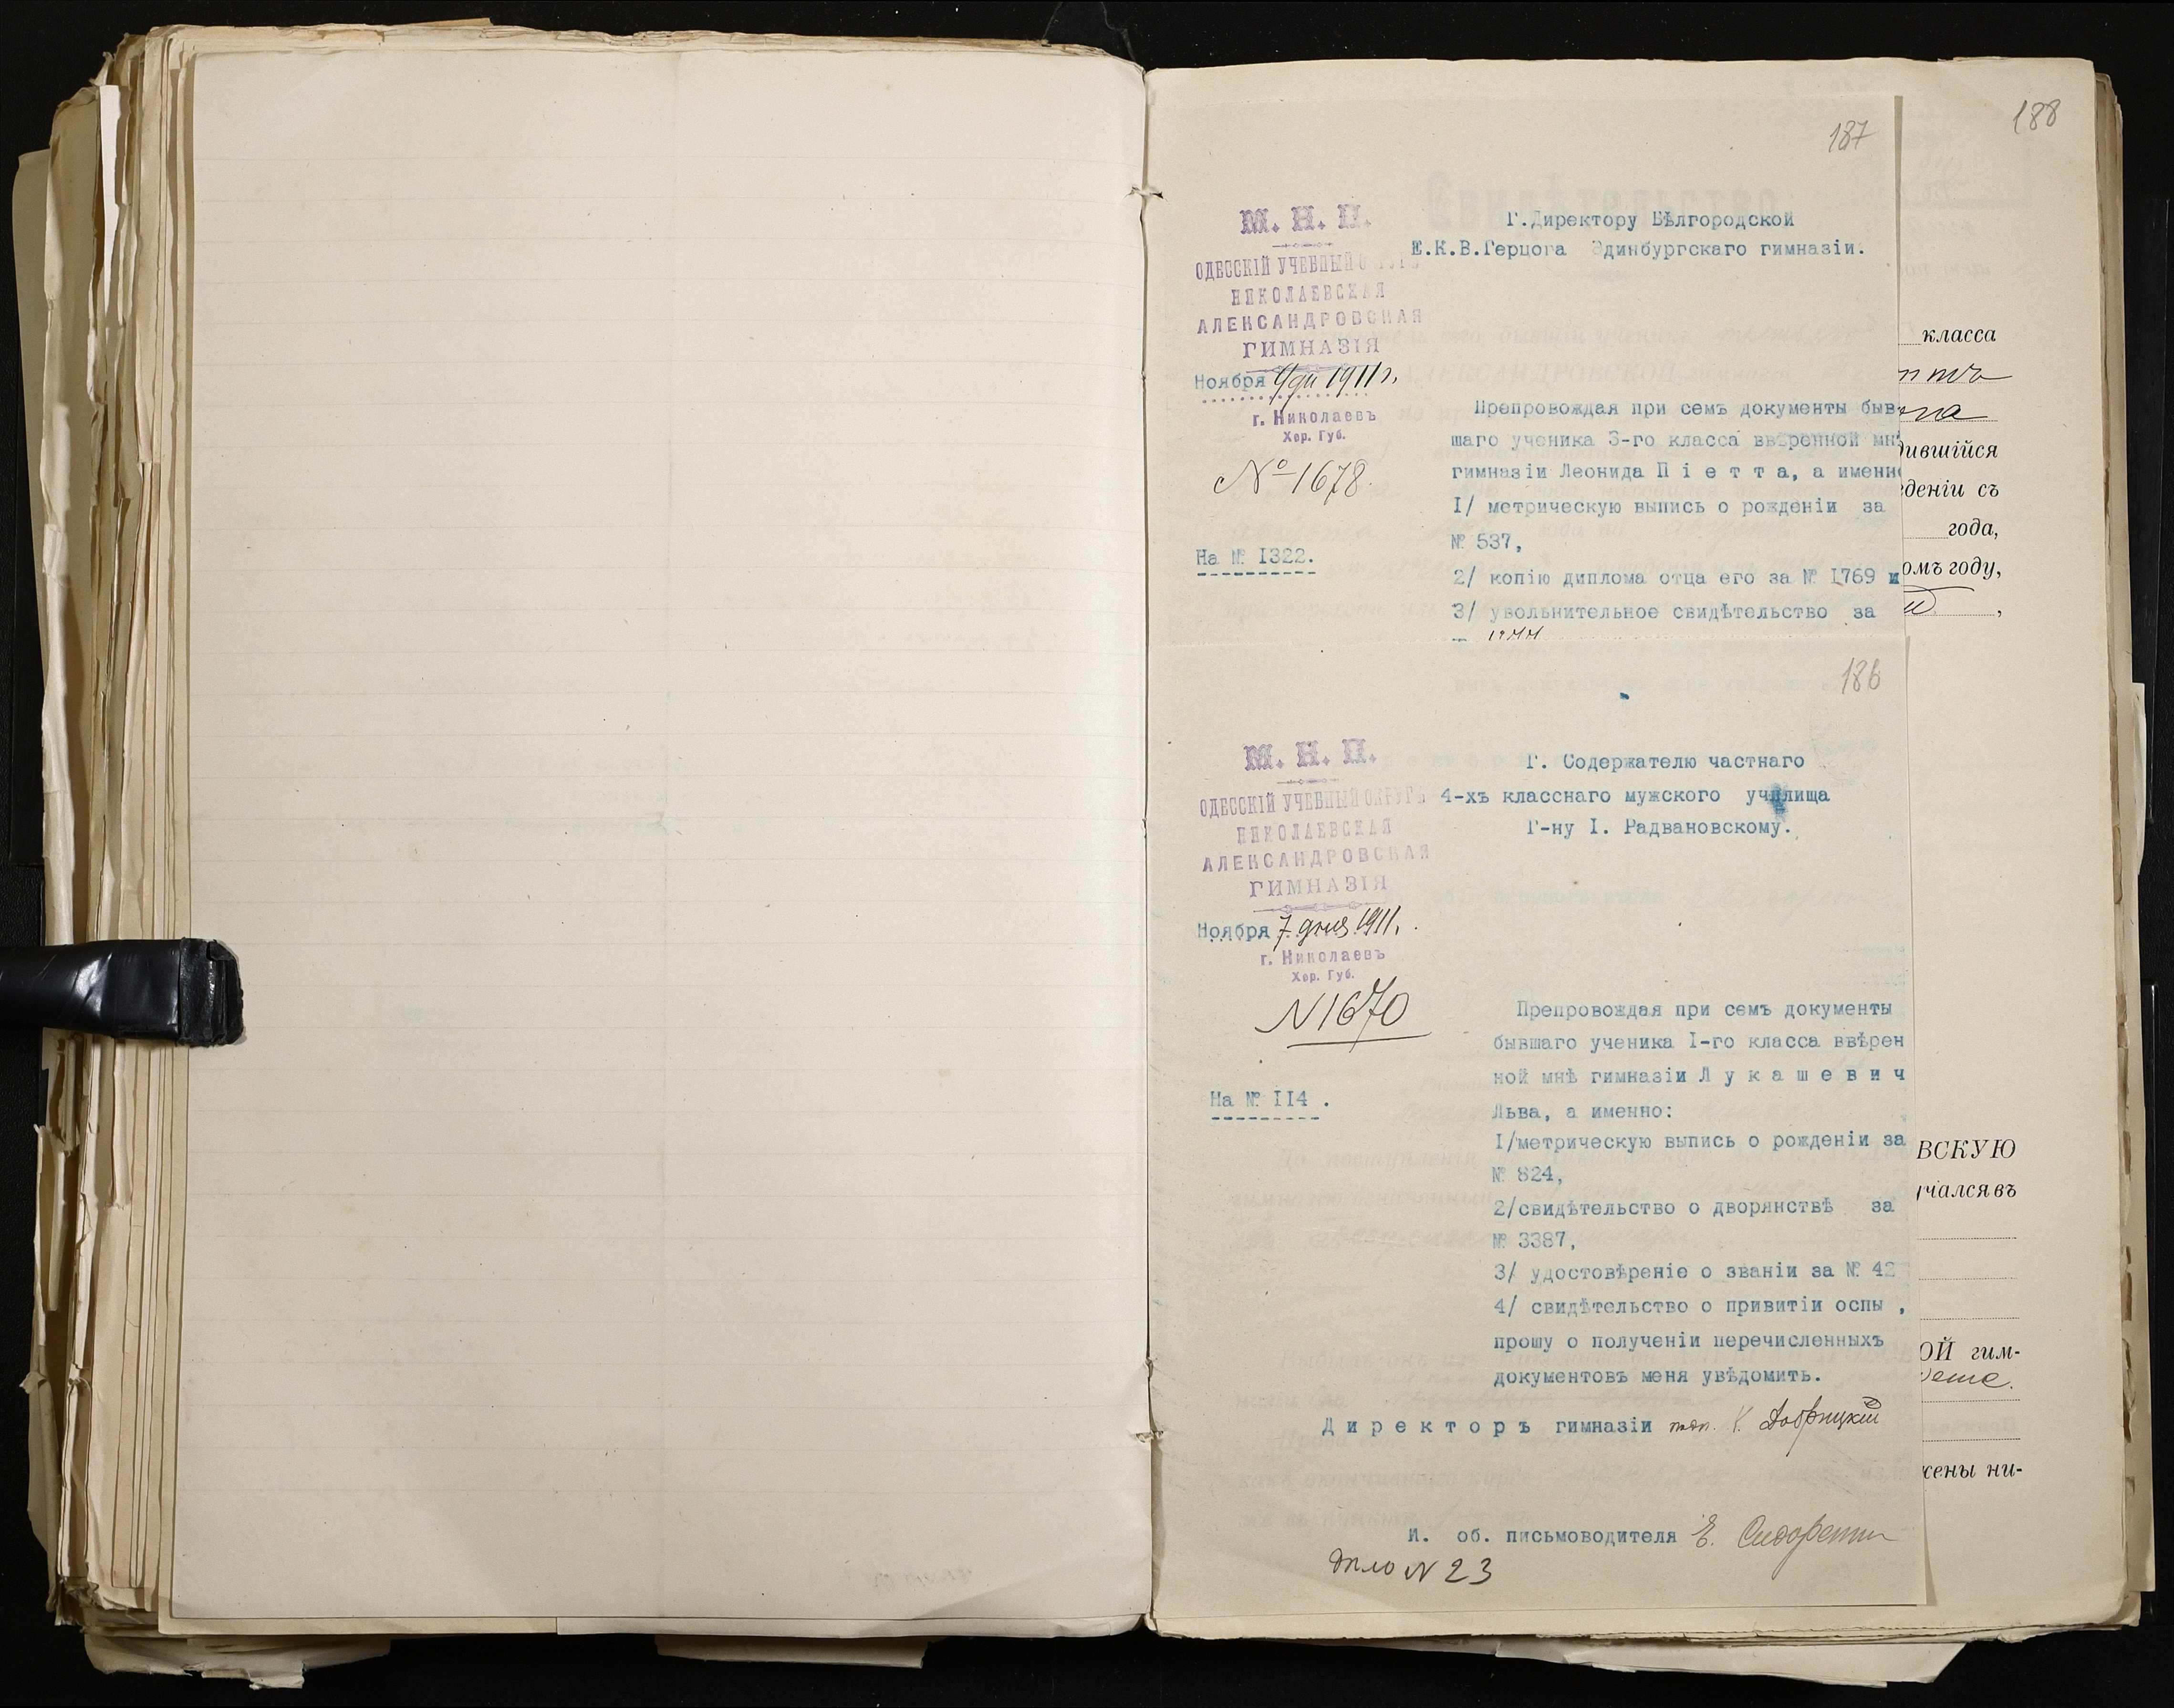 188
187
М. Н. П.
ОДЕССКІЙ УЧЕБНЫЙ
НИКОЛАЕВСКАЯ
АЛЕКСАНДРОВСКАЯ
ГИМНАЗІЯ
Ноября 9 дн 1911 г.
г. Николаевъ
Хер. Губ.
№ 1678.
На № I322.
Г.Директору Бѣлгородской
Е.К.В.Герцога Эдинбургскаго гимназіи.
Препровождая при семъ документы быв-
шаго ученика 3-го класса ввѣренной мнѣ
гимназіи Леонида П і е т т а, а именно
I/ метрическую выпись о рожденіи за
№ 537,
2/ копію диплома отца его за № I769 и
3/ увольнительное свидѣтельство за
186
М. Н. П.
ОДЕССКІЙ УЧЕБНЫЙ ОКРУГЪ
НИКОЛАЕВСКАЯ
АЛЕКСАНДРОВСКАЯ
ГИМНАЗІЯ
Ноября 7 дня 1911.
г. Николаевъ
Хер. Губ.
N 1670
На № II4 .
Г. Содержателю частнаго
4-хъ класснаго мужского училища
Г-ну I. Радвановскому.
Препровождая при семъ документы
бывшаго ученика I-го класса ввѣрен
ной мнѣ гимназіи Л у к а ш е в и ч
Льва, а именно:
I/метрическую выпись о рожденіи за
№ 824,
2/свидѣтельство о дворянствѣ за
№ 3387,
3/ удостовѣреніе о званіи за № 42
4/ свидѣтельство о привитіи оспы ,
прошу о полученіи перечисленныхъ
документовъ меня увѣдомить.
Д и р е к т о р ъ гимназіи подп. К. Добрицкій
И. об. письмоводителя Е. Сидоренко
дѣло N 23
класса
ившійся
деніи съ
года,
омъ году,
ВСКУЮ
учался въ
ОЙ гим-
жены ни-